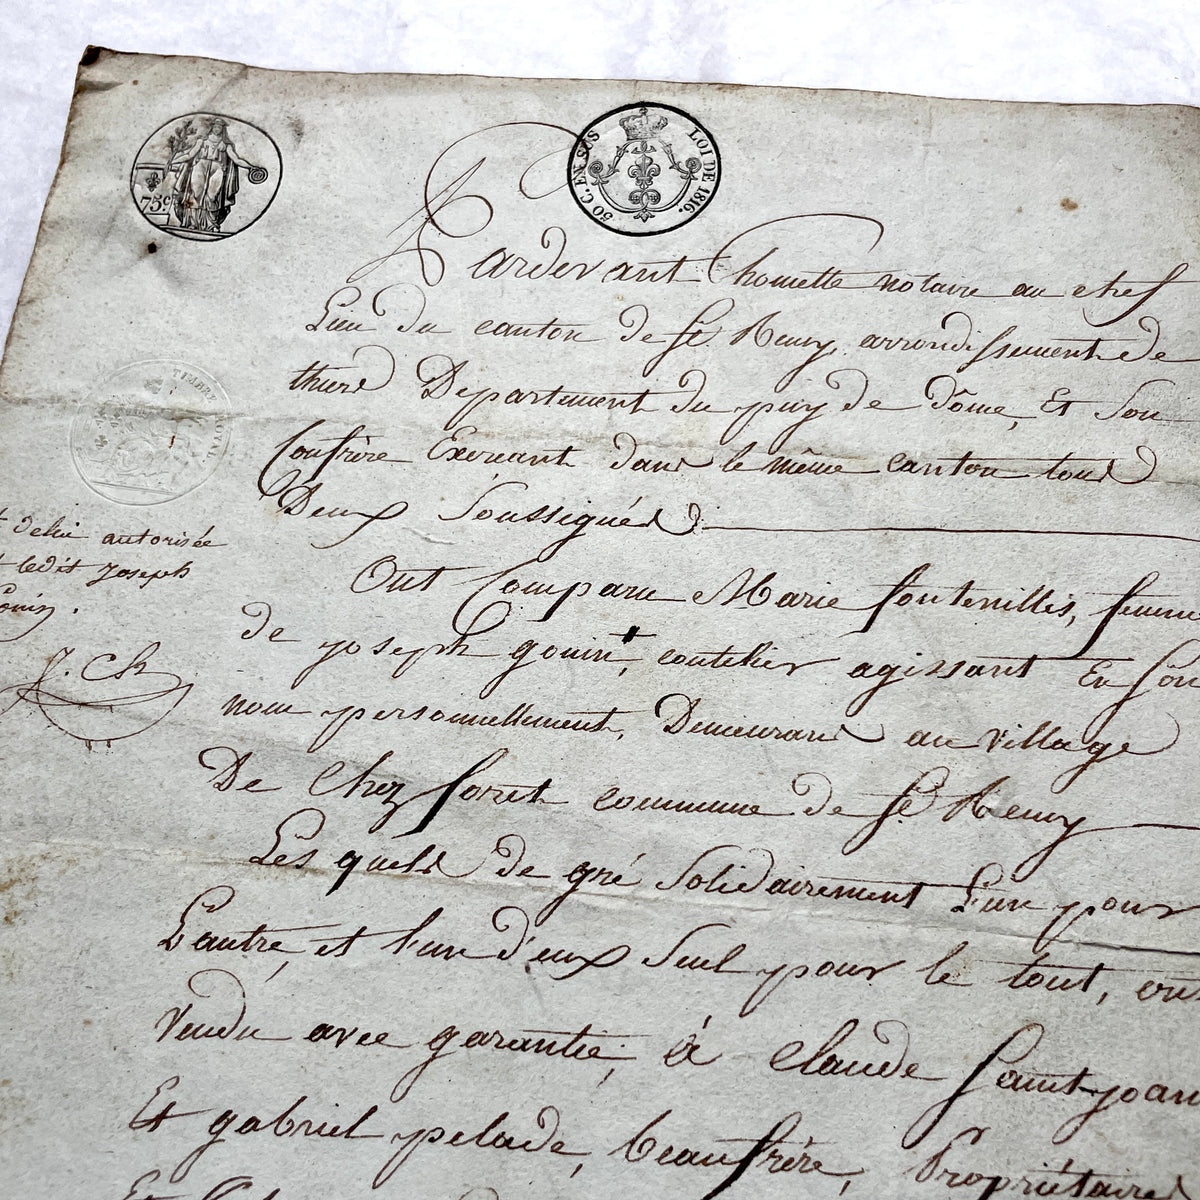 75c
50 C. EN SUS LOI DE 1816.
TIMBRE ROYAL
Pardevant Chomette notaire au chef
Lieu du canton de St Remy, arrondissement de
thiers Département du puy de Dôme, Et Son
Confrère Exerçant dans le même canton tous
Deux Soussignés :
Ont Comparu Marie fontenillis, femme
de joseph gouin, coutelier agissant En Son
nom personnellement, Demeurans au village
De Chez foret commune de St Remy
Les quels de gré Solidairement L'un pour
L'autre, et l'un d'eux Seul pour le tout, ont
Vendu avec garantie, à Claude Saint-joan
Et gabriel pelade, beaufrère, Propriétaires
Et
autorisée
ledit Joseph
Gouin.
J. Ch